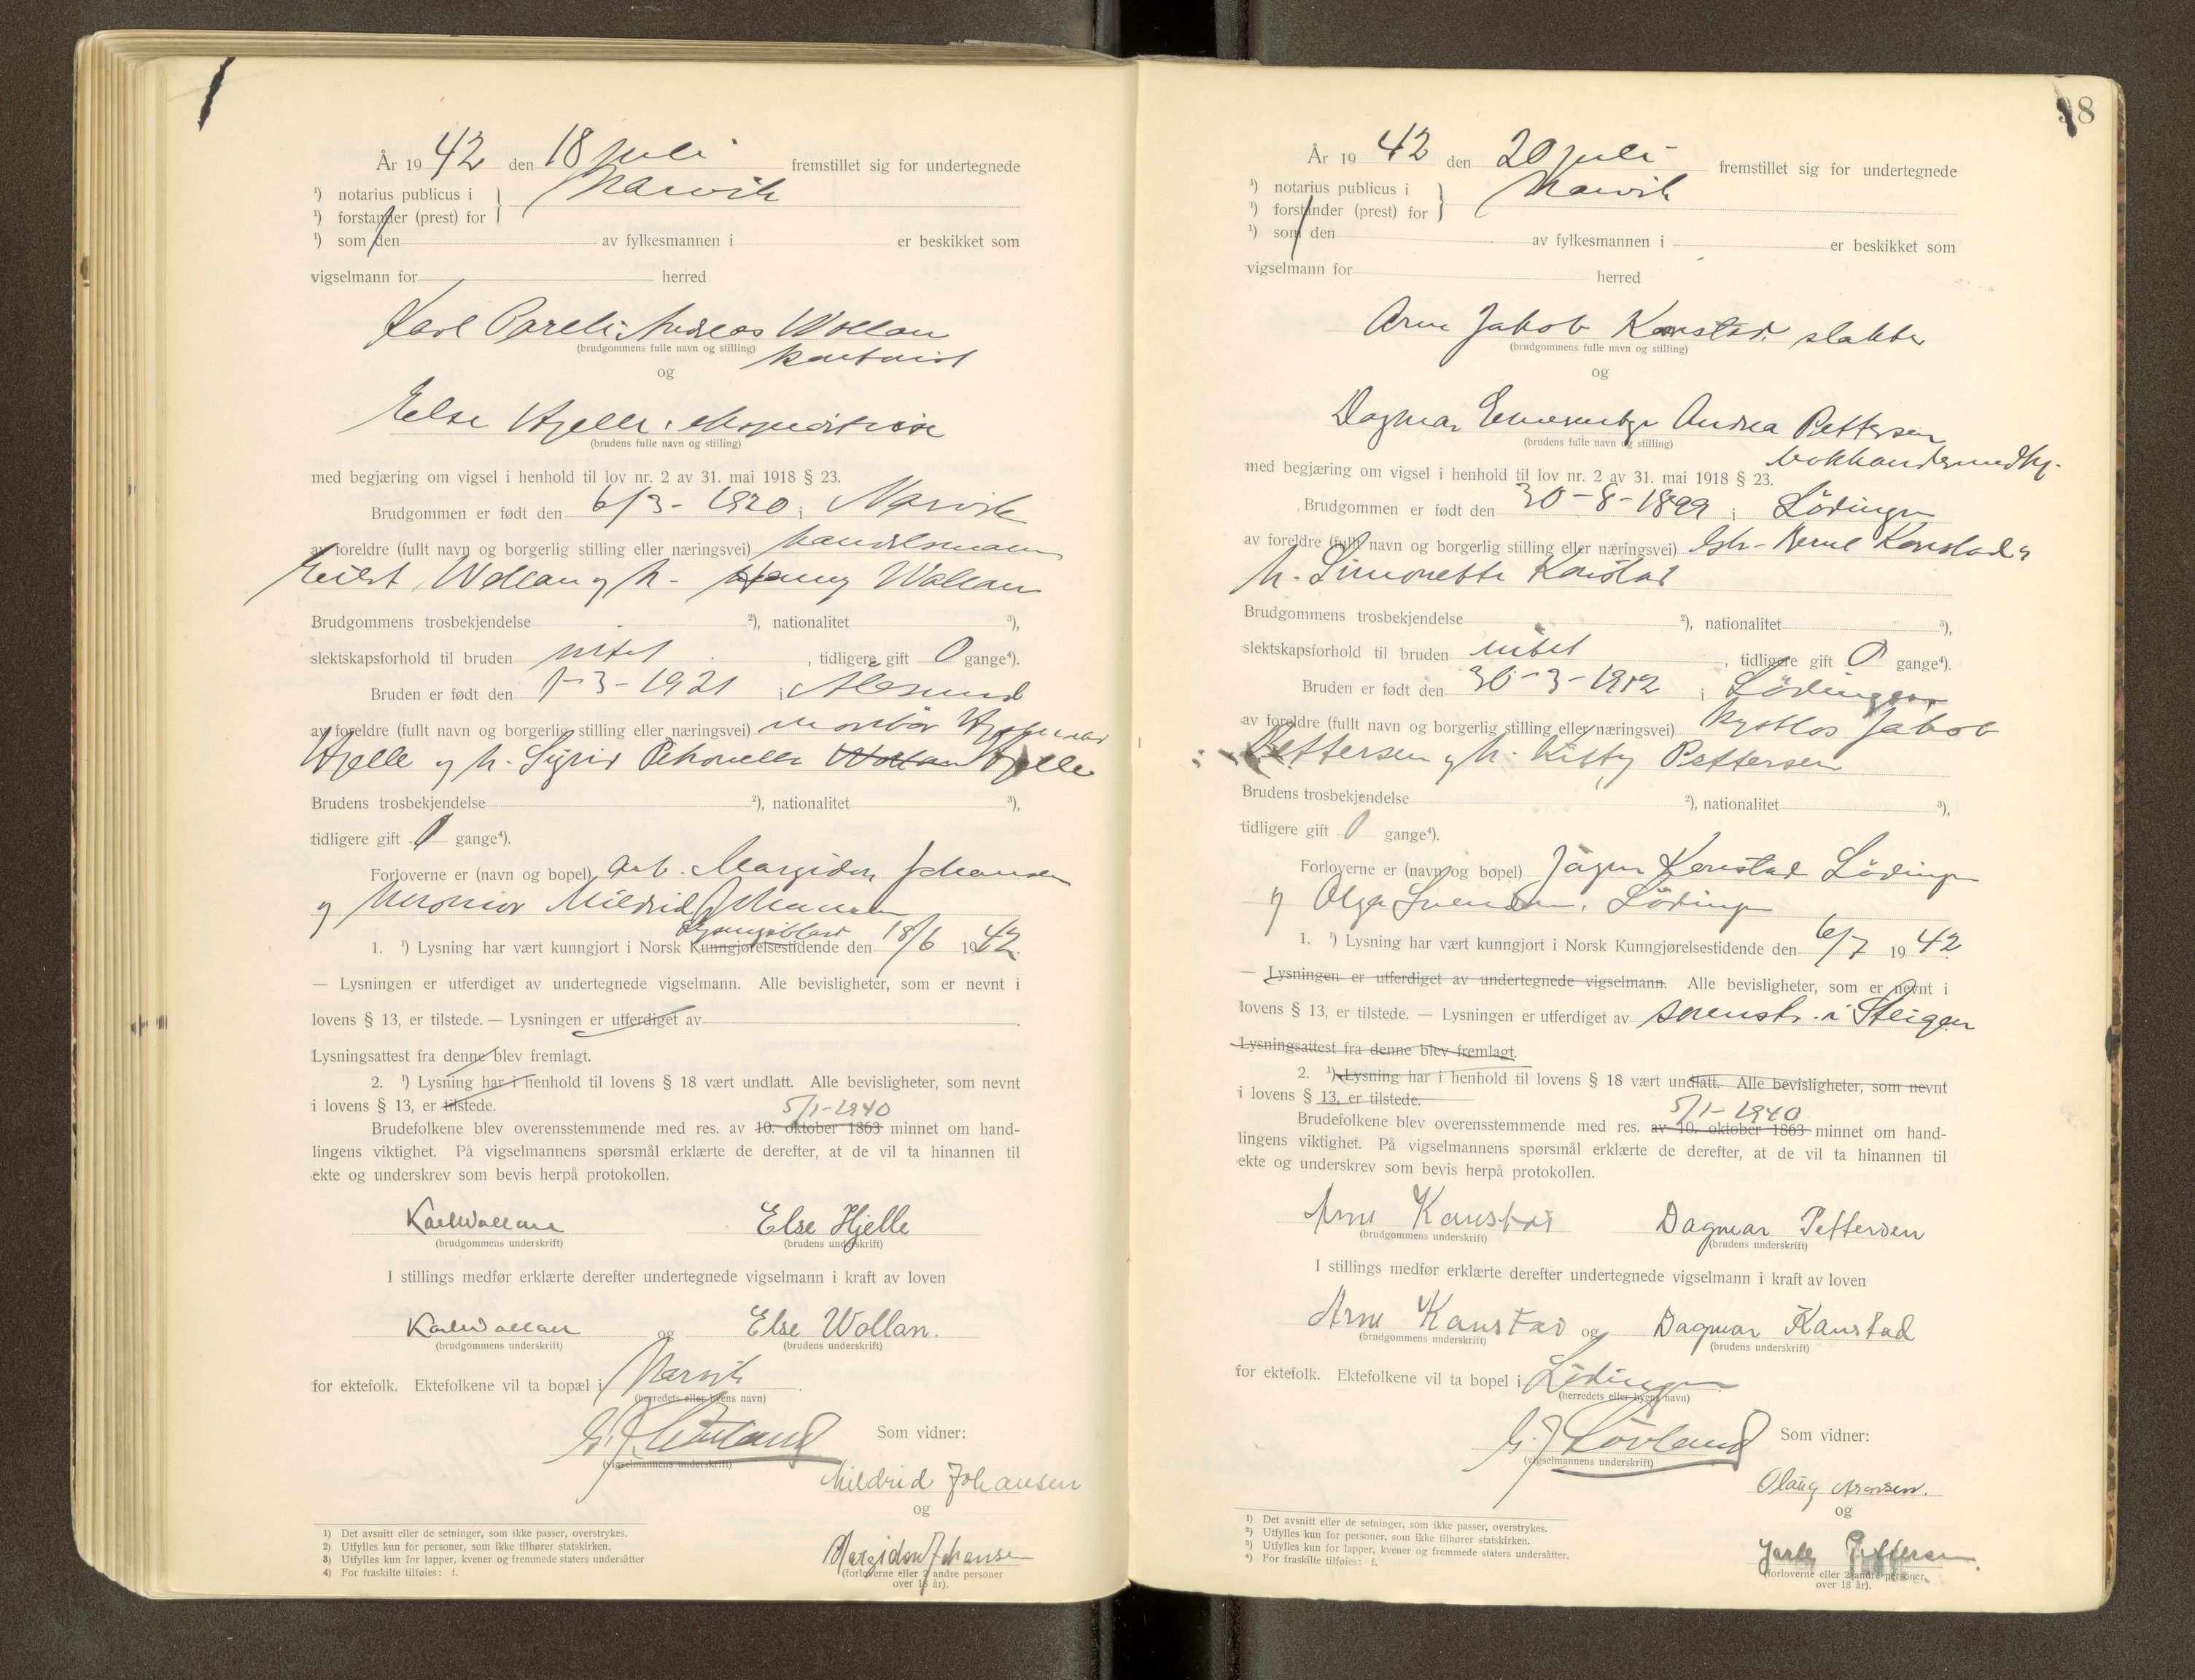 År 1942 den 18 juli fremstillet sig for undertegnede
¹) notarius publicus i } Narvik
¹) forstander (prest) for
¹) som den av fylkesmannen i er beskikket som
vigselmann for herred
Karl Pareli Andreas Wollan
(brudgommens fulle navn og stilling)
kontorist
og
Else Hjelle, ekspeditrise
(brudens fulle navn og stilling)
med begjæring om vigsel i henhold til lov nr. 2 av 31. mai 1918 § 23.
Brudgommen er født den 6/3 - 1920 i Narvik
av foreldre (fullt navn og borgerlig stilling eller næringsvei) handelsmann
Wollan og h. Wollan
Brudgommens trosbekjendelse ²), nationalitet ³),
slektskapsforhold til bruden intet , tidligere gift 0 gange⁴).
Bruden er født den 1-3-1921 i Ålesund
av foreldre (fullt navn og borgerlig stilling eller næringsvei) montør
Hjelle og h. Sigrid Petronelle Wollan Hjelle
Brudens trosbekjendelse ²), nationalitet ³),
tidligere gift 0 gange⁴).
Forloverne er (navn og bopel) arb. Margidon Johansen
og Mildrid Johansen
Lysningsblad
1. ¹) Lysning har vært kunngjort i Norsk Kunngjørelsestidende den 18/6 1942.
— Lysningen er utferdiget av undertegnede vigselmann. Alle bevisligheter, som er nevnt i
lovens § 13, er tilstede. — Lysningen er utferdiget av
Lysningsattest fra denne blev fremlagt.
2. ¹) Lysning har i henhold til lovens § 18 vært undlatt. Alle bevisligheter, som nevnt
i lovens § 13, er tilstede.
5/1-1940
Brudefolkene blev overensstemmende med res. av 10. oktober 1863 minnet om hand-
lingens viktighet. På vigselmannens spørsmål erklærte de derefter, at de vil ta hinannen til
ekte og underskrev som bevis herpå protokollen.
Karl Wollan Else Hjelle
(brudgommens underskrift) (brudens underskrift)
I stillings medfør erklærte derefter undertegnede vigselmann i kraft av loven
Karl Wollan og Else Wollan.
(brudgommens underskrift) (brudens underskrift)
for ektefolk. Ektefolkene vil ta bopæl i Narvik
(herredets eller byens navn)
G. J. Løvland Som vidner:
(vigselmannens underskrift)
Mildrid Johansen
og
Margidon Johansen
(forloverne eller 2 andre personer
over 18 år).
1) Det avsnitt eller de setninger, som ikke passer, overstrykes.
2) Utfylles kun for personer, som ikke tilhører statskirken.
3) Utfylles kun for lapper, kvener og fremmede staters undersåtter
4) For fraskilte tilføies: f.
98
År 1942 den 20 juli fremstillet sig for undertegnede
¹) notarius publicus i } Narvik
¹) forstander (prest) for
¹) som den av fylkesmannen i er beskikket som
vigselmann for herred
Arne Jakob Kanstad slakter
(brudgommens fulle navn og stilling)
og
Dagmar Andrea Pettersen
(brudens fulle navn og stilling)
bokhandlermedhj.
med begjæring om vigsel i henhold til lov nr. 2 av 31. mai 1918 § 23.
Brudgommen er født den 30-8-1899 i Lödingen
av foreldre (fullt navn og borgerlig stilling eller næringsvei) Kanstad og
h. Simonette Kanstad
Brudgommens trosbekjendelse ²), nationalitet ³),
slektskapsforhold til bruden intet , tidligere gift 0 gange⁴).
Bruden er født den 30-3-1912 i Lödingen
av foreldre (fullt navn og borgerlig stilling eller næringsvei) Jakob
Pettersen og h. Kitty Pettersen
Brudens trosbekjendelse ²), nationalitet ³),
tidligere gift 0 gange⁴).
Forloverne er (navn og bopel) Kanstad Lödingen
og Olga Svendsen, Lödingen
1. ¹) Lysning har vært kunngjort i Norsk Kunngjørelsestidende den 6/7 1942
— Lysningen er utferdiget av undertegnede vigselmann. Alle bevisligheter, som er nevnt i
lovens § 13, er tilstede. — Lysningen er utferdiget av sorenskr. i Steigen
Lysningsattest fra denne blev fremlagt.
2. ¹) Lysning har i henhold til lovens § 18 vært undlatt. Alle bevisligheter, som nevnt
i lovens § 13, er tilstede.
5/1-1940
Brudefolkene blev overensstemmende med res. av 10. oktober 1863 minnet om hand-
lingens viktighet. På vigselmannens spørsmål erklærte de derefter, at de vil ta hinannen til
ekte og underskrev som bevis herpå protokollen.
Arne Kanstad Dagmar Pettersen
(brudgommens underskrift) (brudens underskrift)
I stillings medfør erklærte derefter undertegnede vigselmann i kraft av loven
Arne Kanstad og Dagmar Kanstad
(brudgommens underskrift) (brudens underskrift)
for ektefolk. Ektefolkene vil ta bopel i Lödingen
(herredets eller byens navn)
G. J. Lövland Som vidner:
(vigselmannens underskrift)
Olaug Aronsen.
og
Jarle Pettersen.
(forloverne eller 2 andre personer
over 18 år).
¹) Det avsnitt eller de setninger, som ikke passer, overstrykes.
²) Utfylles kun for personer, som ikke tilhører statskirken.
³) Utfylles kun for lapper, kvener og fremmede staters undersåtter.
⁴) For fraskilte tilføies: f.